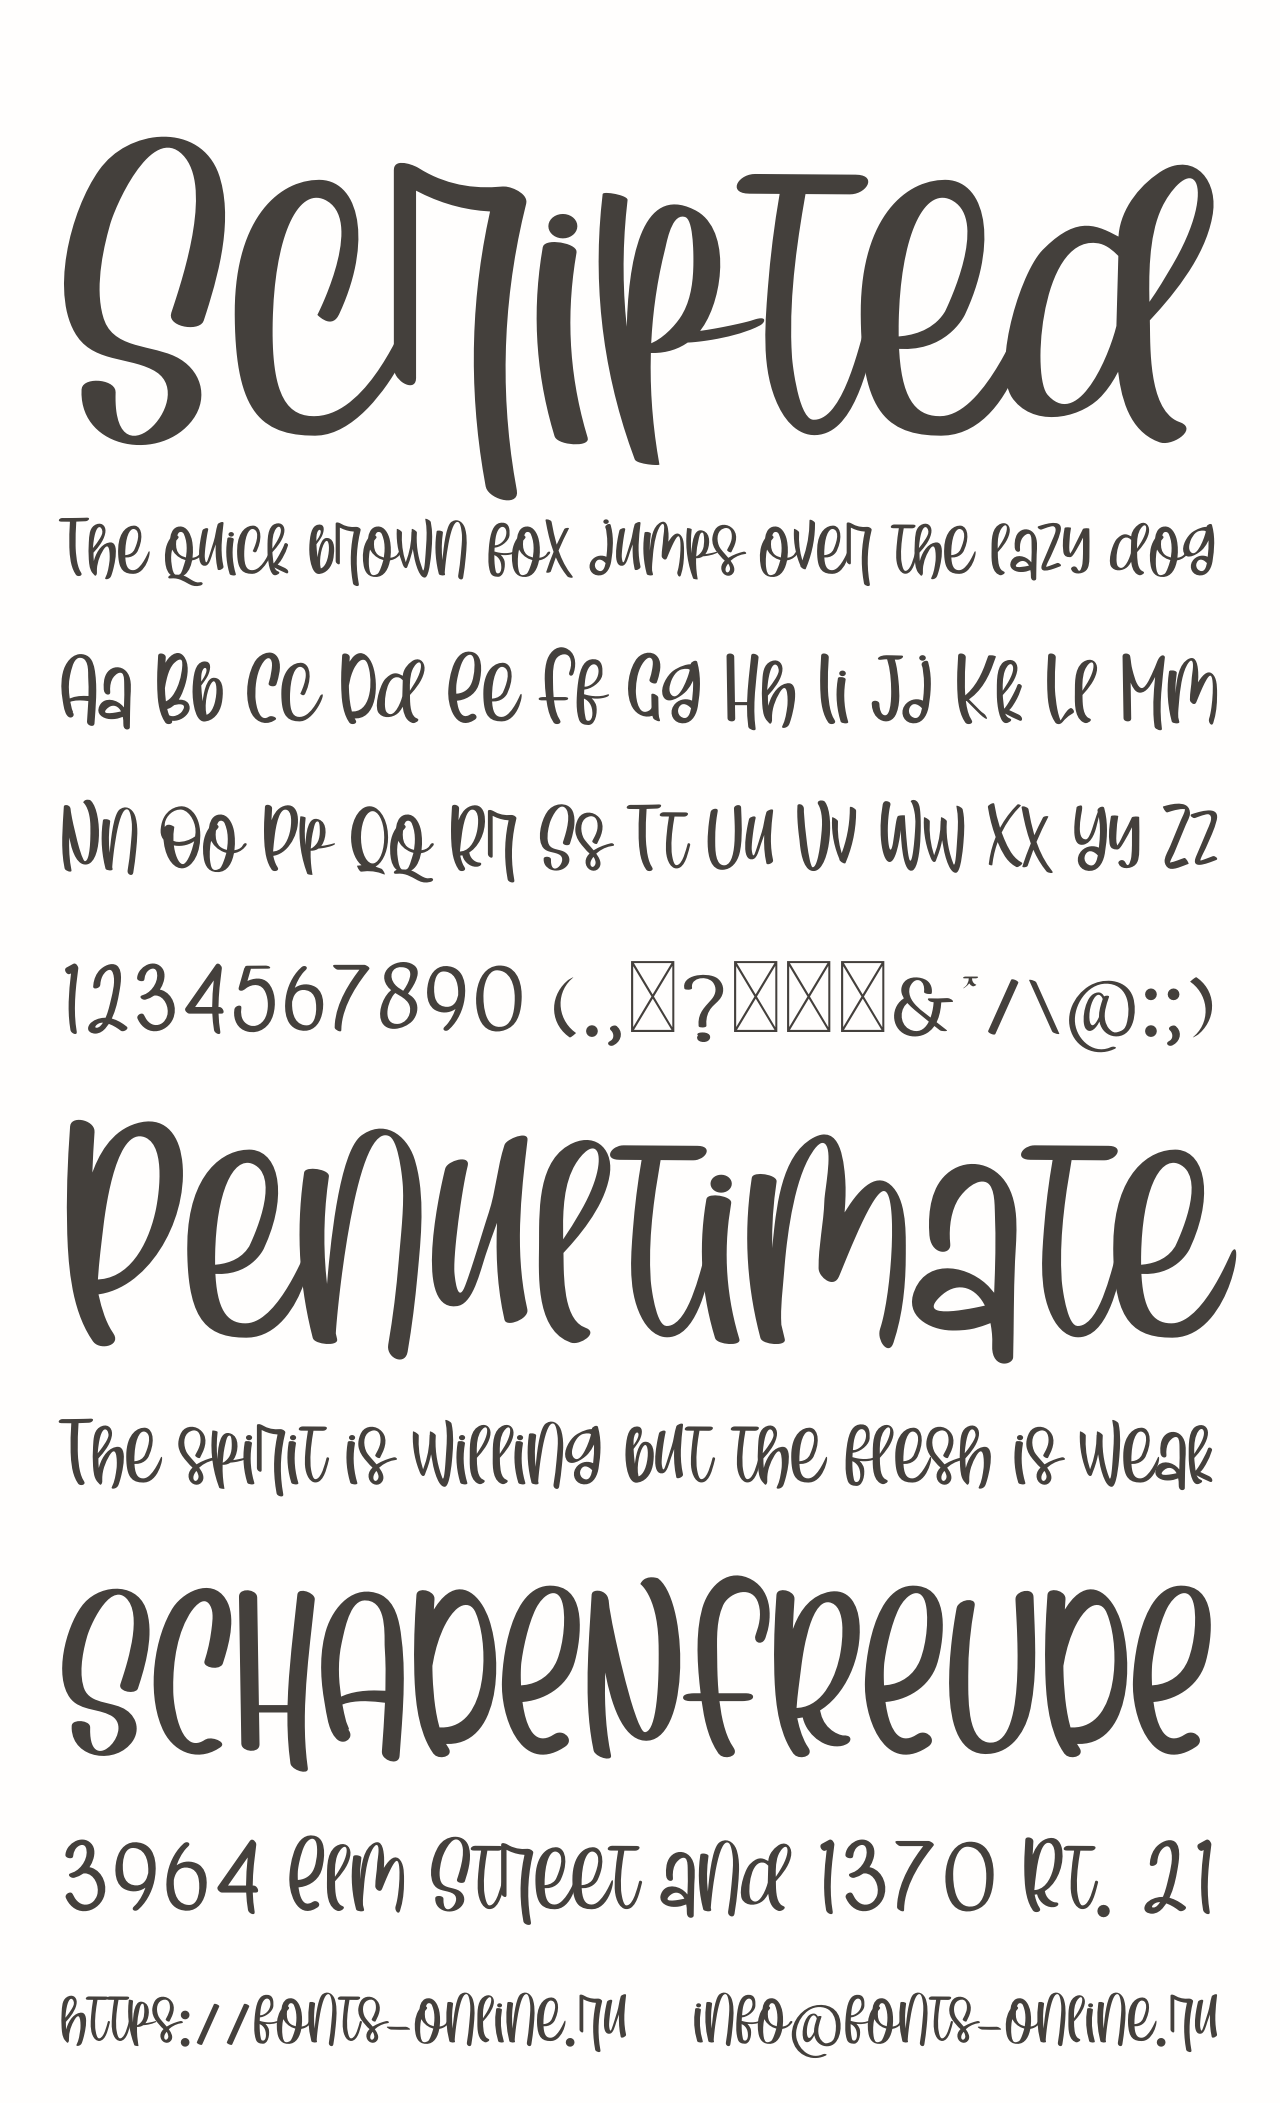 Scripted
The quick brown fox jumps over the lazy dog
Aa Bb Cc Dd Ee Ff Gg Hh Ii Jj Kk Ll Mm
Nn Oo Pp Qq Rr Ss Tt Uu Vv Ww Xx Yy Zz
1234567890 (.,?&*/\@:;)
Penultimate
The spirit is willing but the flesh is weak
SCHADENFREUDE
3964 Elm Street and 1370 Rt. 21
https://fonts-online.ru info@fonts-online.ru